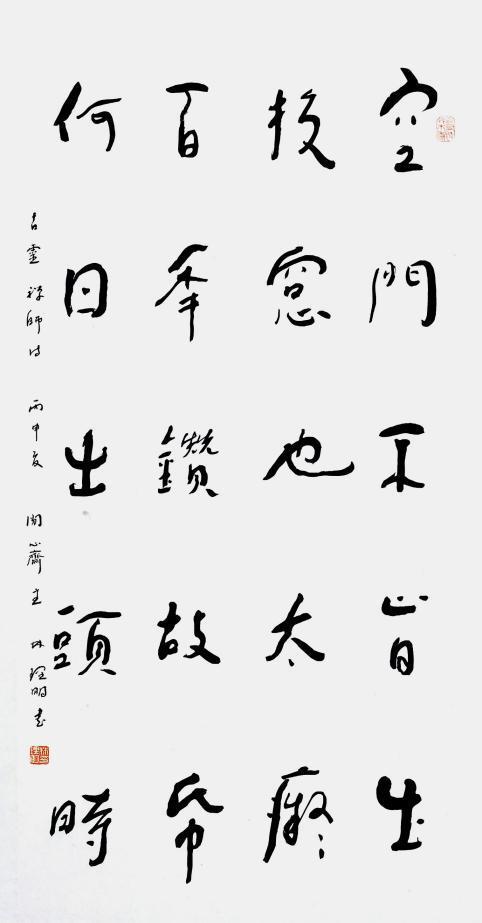 空門不肯出
投窻也太癡
百年鑽故帋
何日出頭時
古靈禪師詩 丙申夏 心齋主 林明書